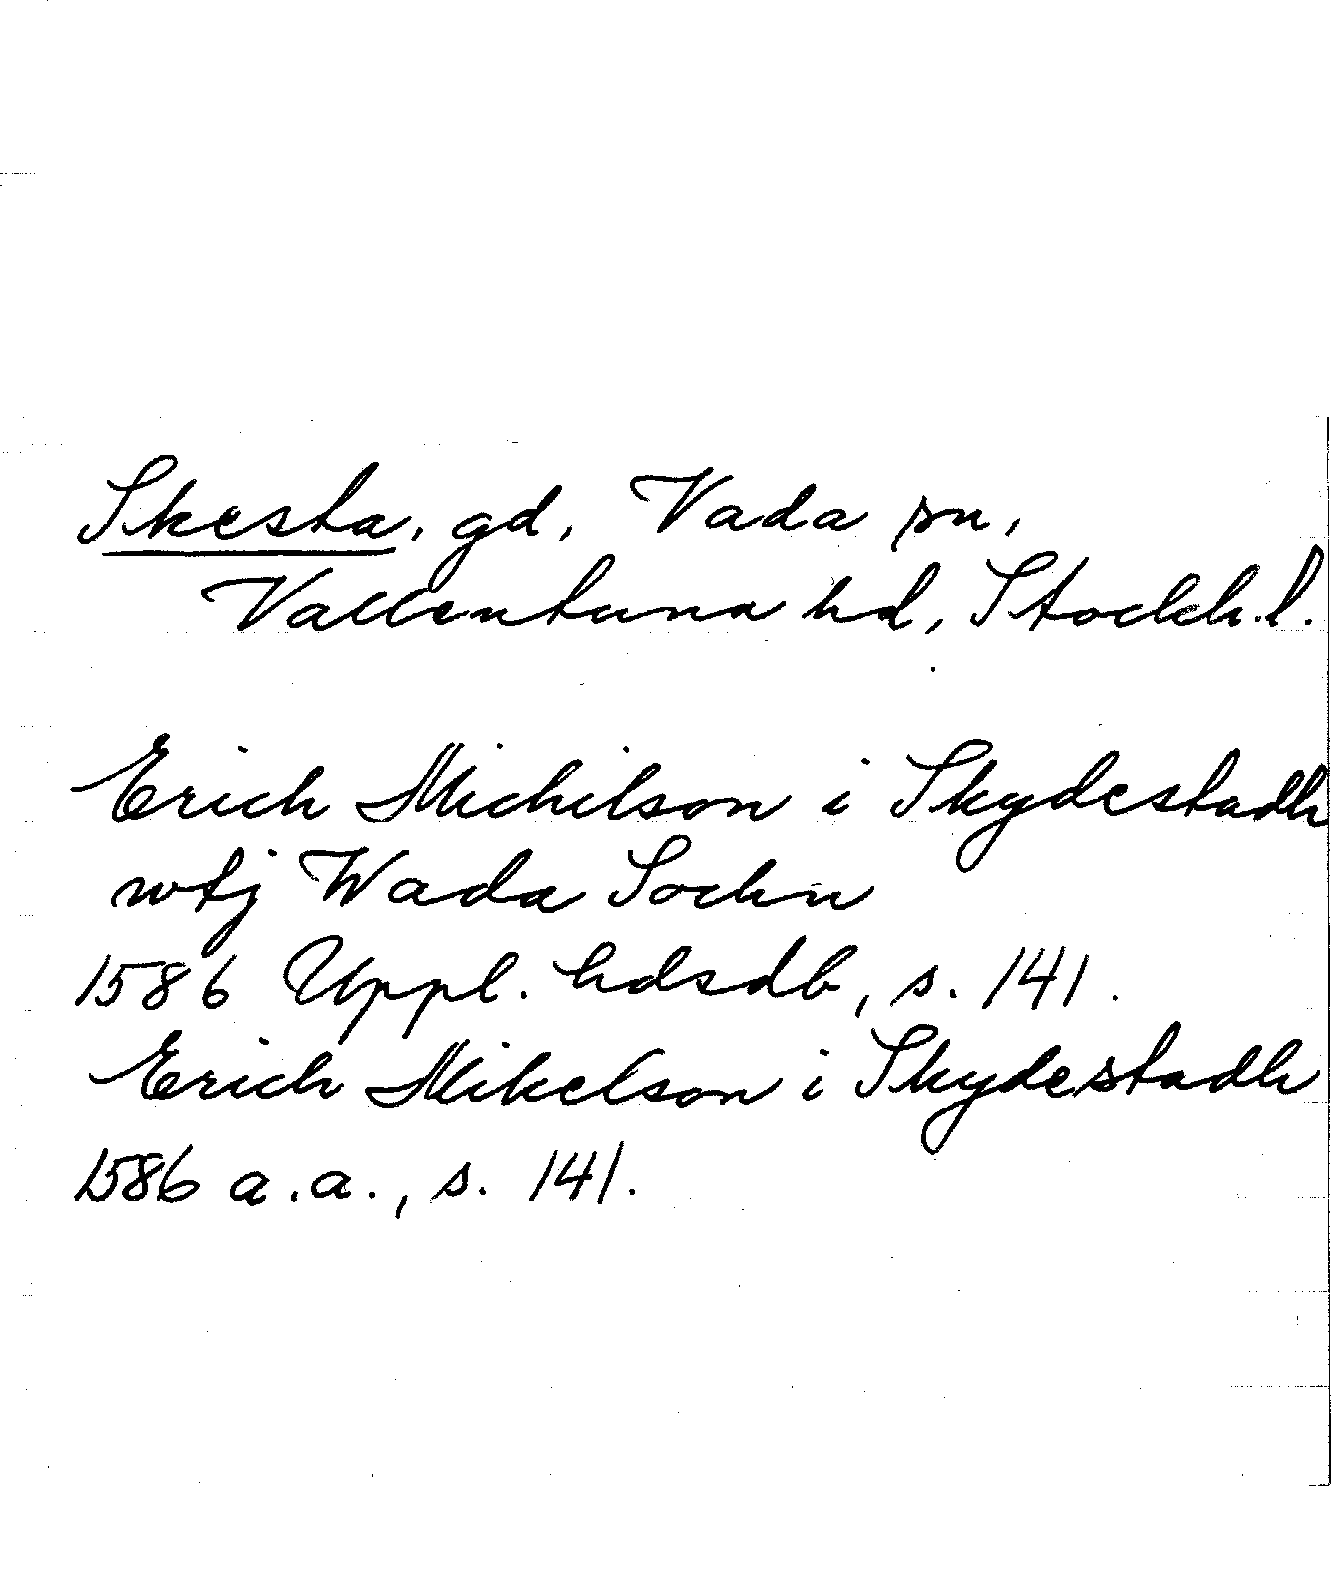 Skesta, gd, Vada sn,
Vallentuna hd, Stockh.l.
Erich Michilson i Skydestadh
wtj Wada Sochn
1586 Uppl. hdsdb, s. 141.
Erich Mikelson i Skydestadh
1586 a.a., s. 141.